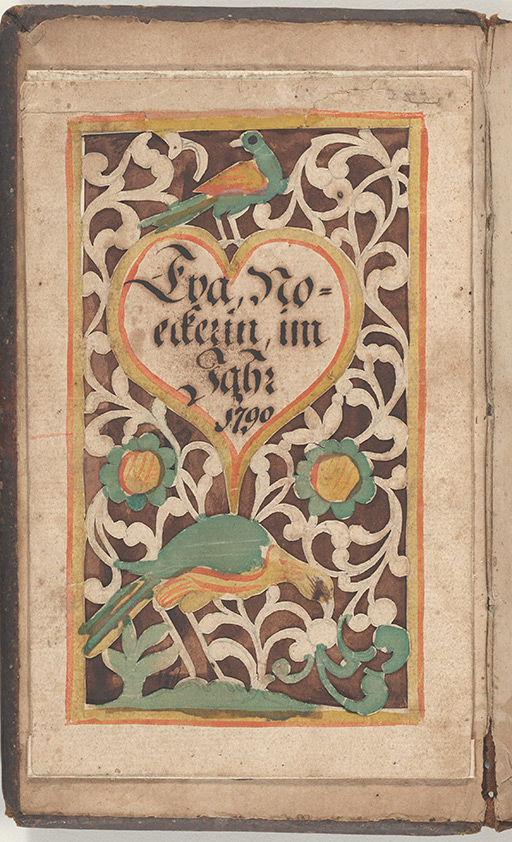 Eva, No=
eckerin, im
Jahr
1790